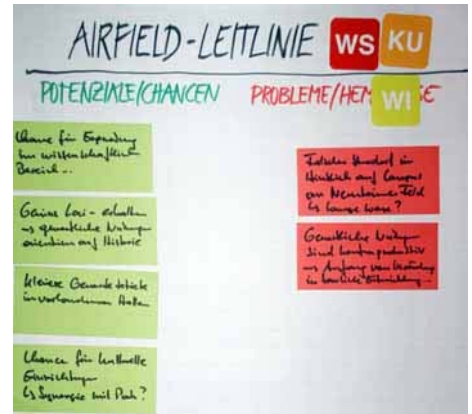 AIRFIELD-LEITLINIE WS KU
POTENZIALE/CHANCEN PROBLEME/HEM SE
WI
Chance für
im wissenschaftlichen
Bereich ...
Genius Loci - erhalten
gewerbliche Nutzungen
orientieren auf Historie
kleinere Gewerbebetriebe
in vorhandenen Hallen
Chance für kulturelle
Einrichtungen
Synergie mit Park?
Falscher Standort im
Hinblick auf Campus
am Neuenheimer Feld
lange Wege?
Gewerbliche Nutzungen
sind kontraproduktiv
Anfang von
in bauliche Entwicklung...